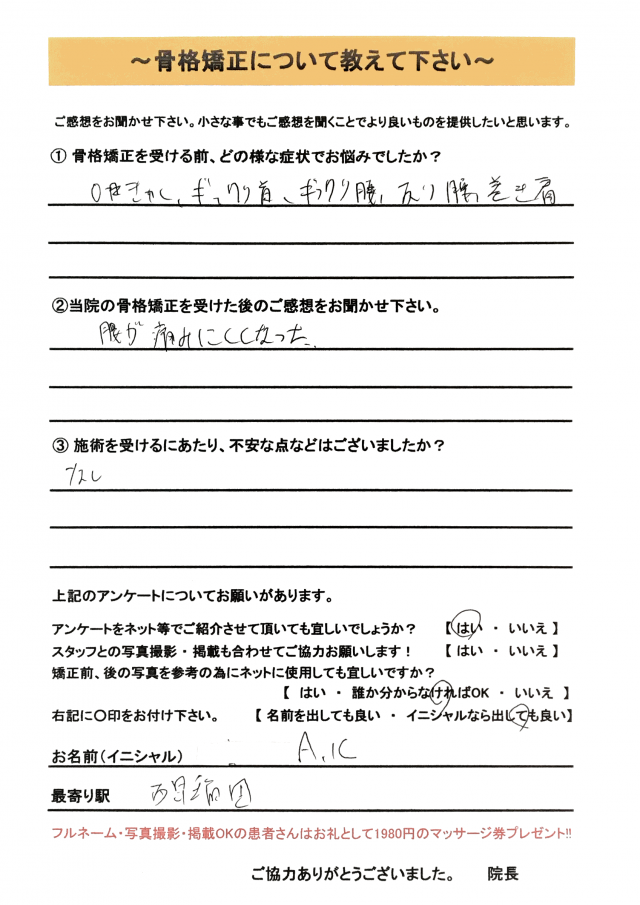 ～骨格矯正について教えて下さい～
ご感想をお聞かせ下さい。小さな事でもご感想を聞くことでより良いものを提供したいと思います。
① 骨格矯正を受ける前、どの様な症状でお悩みでしたか？
ギックリ首、ギックリ腰、反り腰、巻き肩
②当院の骨格矯正を受けた後のご感想をお聞かせ下さい。
腰が痛みにくくなった。
③ 施術を受けるにあたり、不安な点などはございましたか？
なし
上記のアンケートについてお願いがあります。
アンケートをネット等でご紹介させて頂いても宜しいでしょうか？ 【 はい ・ いいえ 】
スタッフとの写真撮影・掲載も合わせてご協力お願いします！ 【 はい ・ いいえ 】
矯正前、後の写真を参考の為にネットに使用しても宜しいですか？
【 はい ・ 誰か分からなければOK ・ いいえ 】
右記に〇印をお付け下さい。 【 名前を出しても良い ・ イニシャルなら出しても良い】
お名前（イニシャル） A.K
最寄り駅 西早稲田
フルネーム・写真撮影・掲載OKの患者さんはお礼として1980円のマッサージ券プレゼント!!
ご協力ありがとうございました。 院長